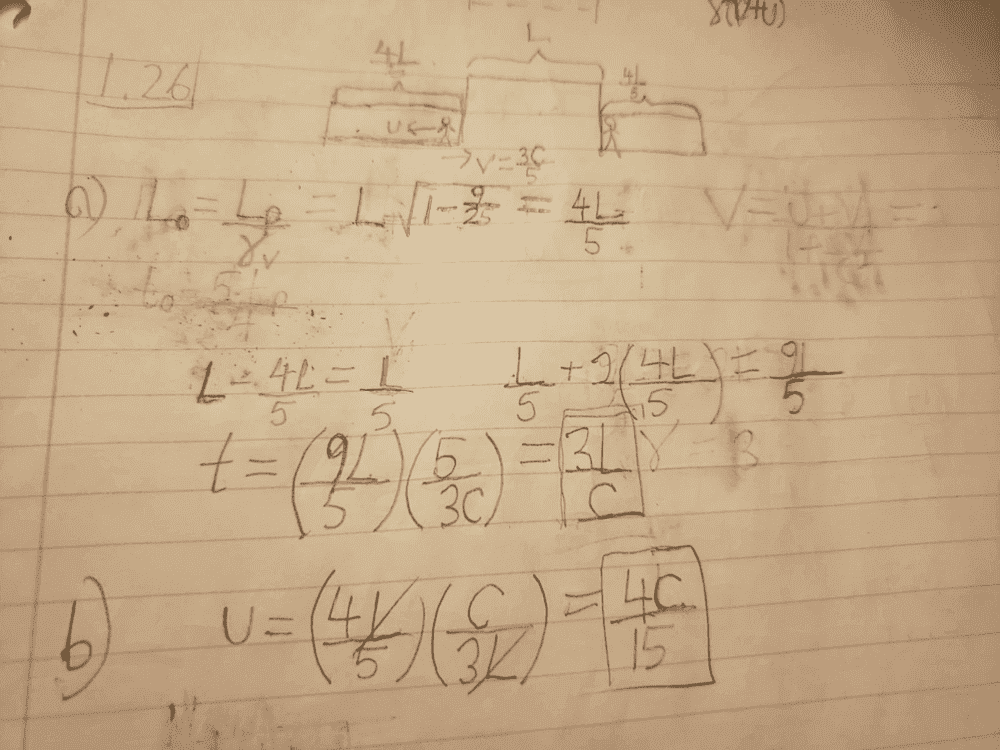 γ(V+U)
1.26
4L/5 L 4L/5
U ←
→ V = 3C/5
a) L₀ = Lₚ/γᵥ = L √(1 - 9/25) = 4L/5
L - 4L/5 = L/5 L/5 + 2(4L/5) = 9L/5
t = (9L/5)(5/3C) = 3L/C
b) U = (4L/5)(C/3L) = 4C/15